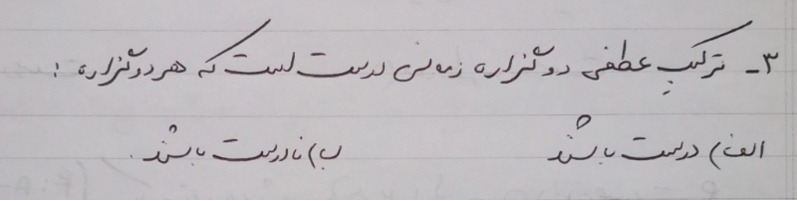 ۳- ترکیب عطفی دو گزاره زمانی درست است که هر دو گزاره :
الف) درست باشند ب) نادرست باشند.